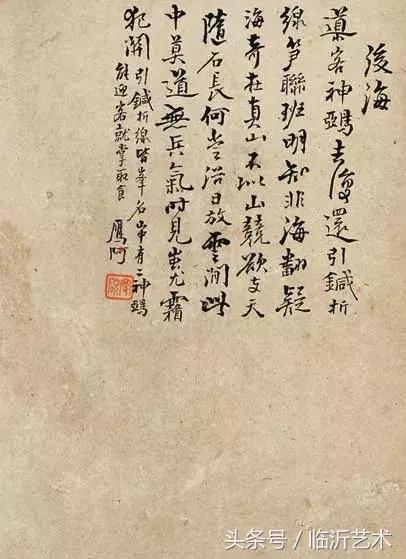 後海
導客神鴉去復還引鍼折
線笋聯班明知非海翻疑
海奇在真山不似山競欲支天
隨石長何嘗沿日放雲閒此
中莫道無兵氣時見蚩尤霧
犯關 引鍼折線皆峯名常有二神鴉
能迎客就掌取食 鷹阿
头条号 / 临沂艺术